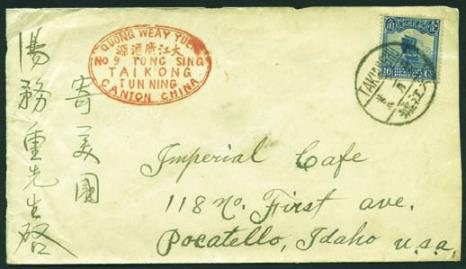 QUONG WEAY YUEN
源滙廣江大
No 9 TONG SING
TAIKONG
TUNNING
CANTON CHINA
湯務重先生啓
寄美國
Imperial Cafe
118 No. First ave.
Pocatello, Idaho U.S.A.